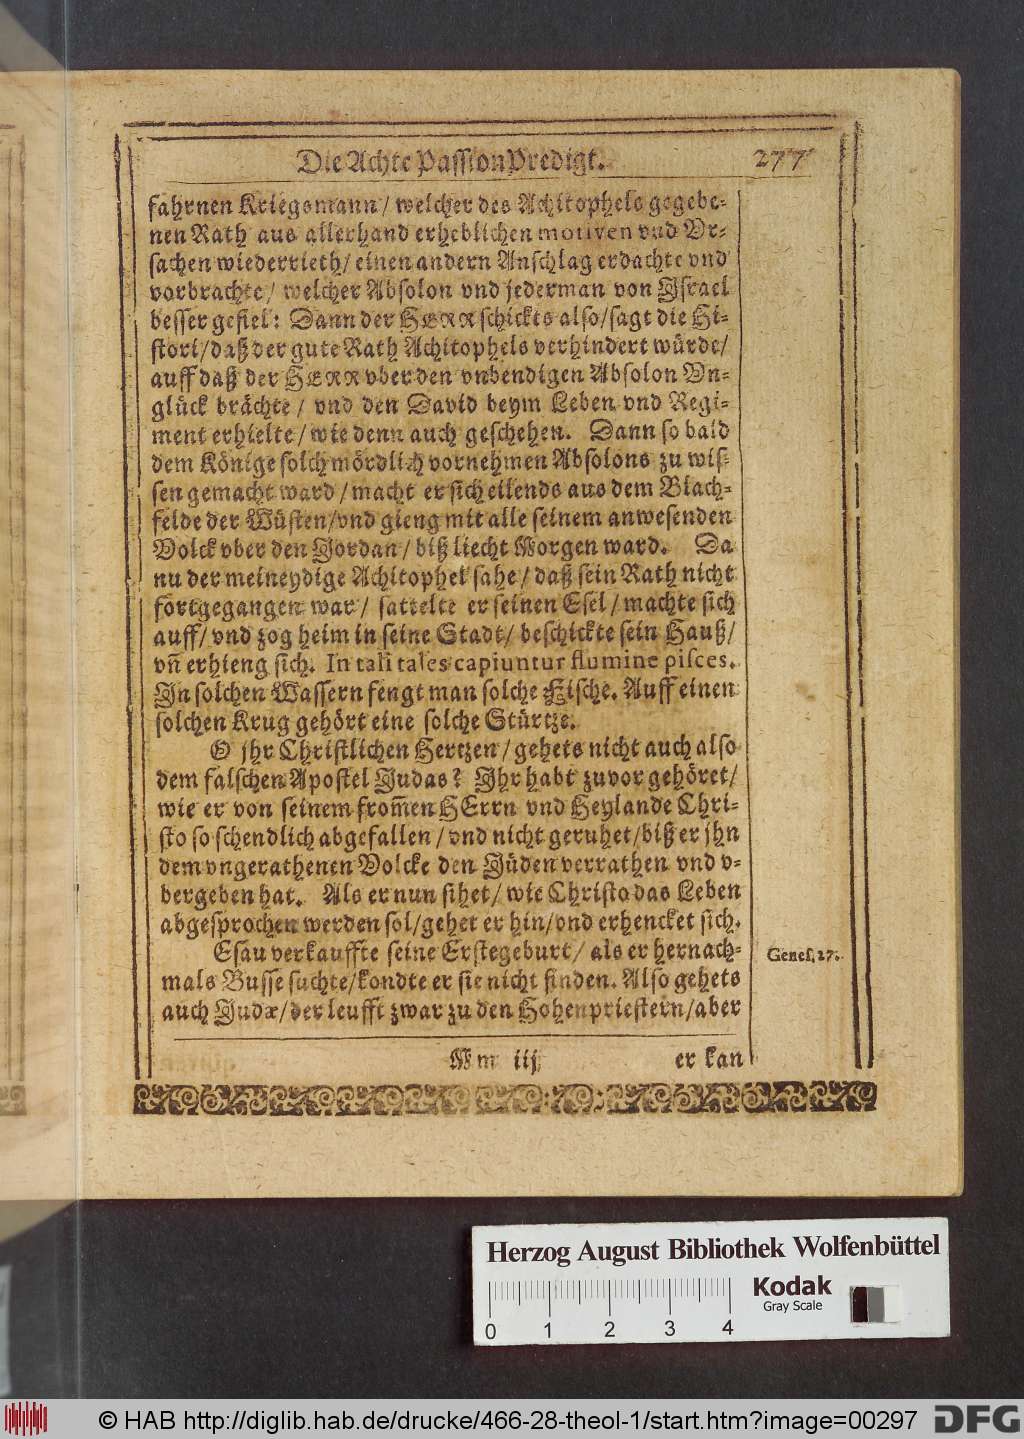 Die Achte PassionPredigt. 277
fahrnen Kriegsmann/ welcher des Achitophels gegebe-
nen Rath aus allerhand erheblichen motiven vnd Vr-
sachen wiederrieth/ einen andern Anschlag erdachte vnd
vorbrachte/ welcher Absolon vnd jederman von Jsrael
besser gefiel: Dann der HERR schickts also/ sagt die Hi-
stori/ daß der gute Rath Achitophels verhindert würde/
auff daß der HERR vber den vnbendigen Absolon Vn-
glück brächte/ vnd den David beym Leben vnd Regi-
ment erhielte/ wie denn auch geschehen. Dann so bald
dem Könige solch mördlich vornehmen Absolons zu wis-
sen gemacht ward/ macht er sich eilends aus dem Blach-
felde der Wüsten/ vnd gieng mit alle seinem anwesenden
Volck vber den Jordan/ biß liecht Morgen ward. Da
nu der meineydige Achitophel sahe/ daß sein Rath nicht
fortgegangen war/ sattelte er seinen Esel/ machte sich
auff/ vnd zog heim in seine Stadt/ beschickte sein Hauß/
vñ erhieng sich. In tali tales capiuntur flumine pisces.
Jn solchen Wassern fengt man solche Fische. Auff einen
solchen Krug gehört eine solche Stürtze.
O jhr Christlichen Hertzen/ gehets nicht auch also
dem falschen Apostel Judas? Jhr habt zuvor gehöret/
wie er von seinem from̃en HErrn vnd Heylande Chri-
sto so schendlich abgefallen/ vnd nicht geruhet/ biß er jhn
dem vngerathenen Volcke den Jüden verrathen vnd v-
bergeben hat. Als er nun sihet/ wie Christo das Leben
abgesprochen werden sol/ gehet er hin/ vnd erhencket sich.
Esau verkauffte seine Erstegeburt/ als er hernach-
mals Busse suchte/ kondte er sie nicht finden. Also gehets
auch Judæ/ der leufft zwar zu den Hohenpriestern/ aber
Genes. 27.
Mm iij er kan
Herzog August Bibliothek Wolfenbüttel
Kodak
Gray Scale
0 1 2 3 4
© HAB http://diglib.hab.de/drucke/466-28-theol-1/start.htm?image=00297
DFG